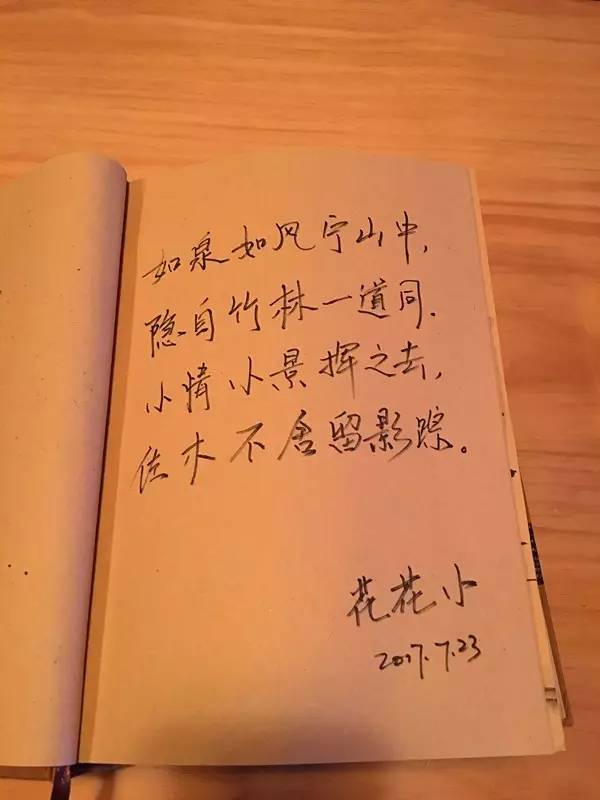 如泉如风宁山中,
隐自竹林一道同.
小情小景挥之去,
佳木不舍留影踪。
花花小
2017.7.23